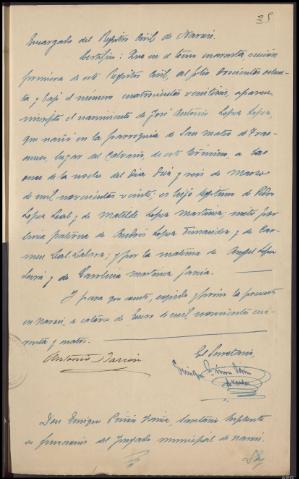 35
Encargado del Registro Civil de Narón.
Certifico: Que en el tomo cuarenta sección
primera de este Registro Civil, al folio trescientos
y bajo el número cuatrocientos veintiseis, aparece
inscripto el nacimiento de José Antonio Lopez Lopez,
que nació en la parroquia de San Mateo de
lugar del Calvario, de este término a las
once de la noche del dia diez y seis de marzo
de mil novecientos veinte; es hijo legítimo de
Lopez Leal y de Matilde Lopez Martinez; nieto por
linea paterna de Lopez Fernandez y de Car-
men Leal; y por la materna de Angel Lopez
y de Carolina Martinez
Y para que conste, expido y firmo la presente
en Narón, a catorce de Enero de mil novecientos cua-
renta y
El Secretario,
Antonio
Don Enrique Secretario suplente
en funciones del Juzgado municipal de Narón.